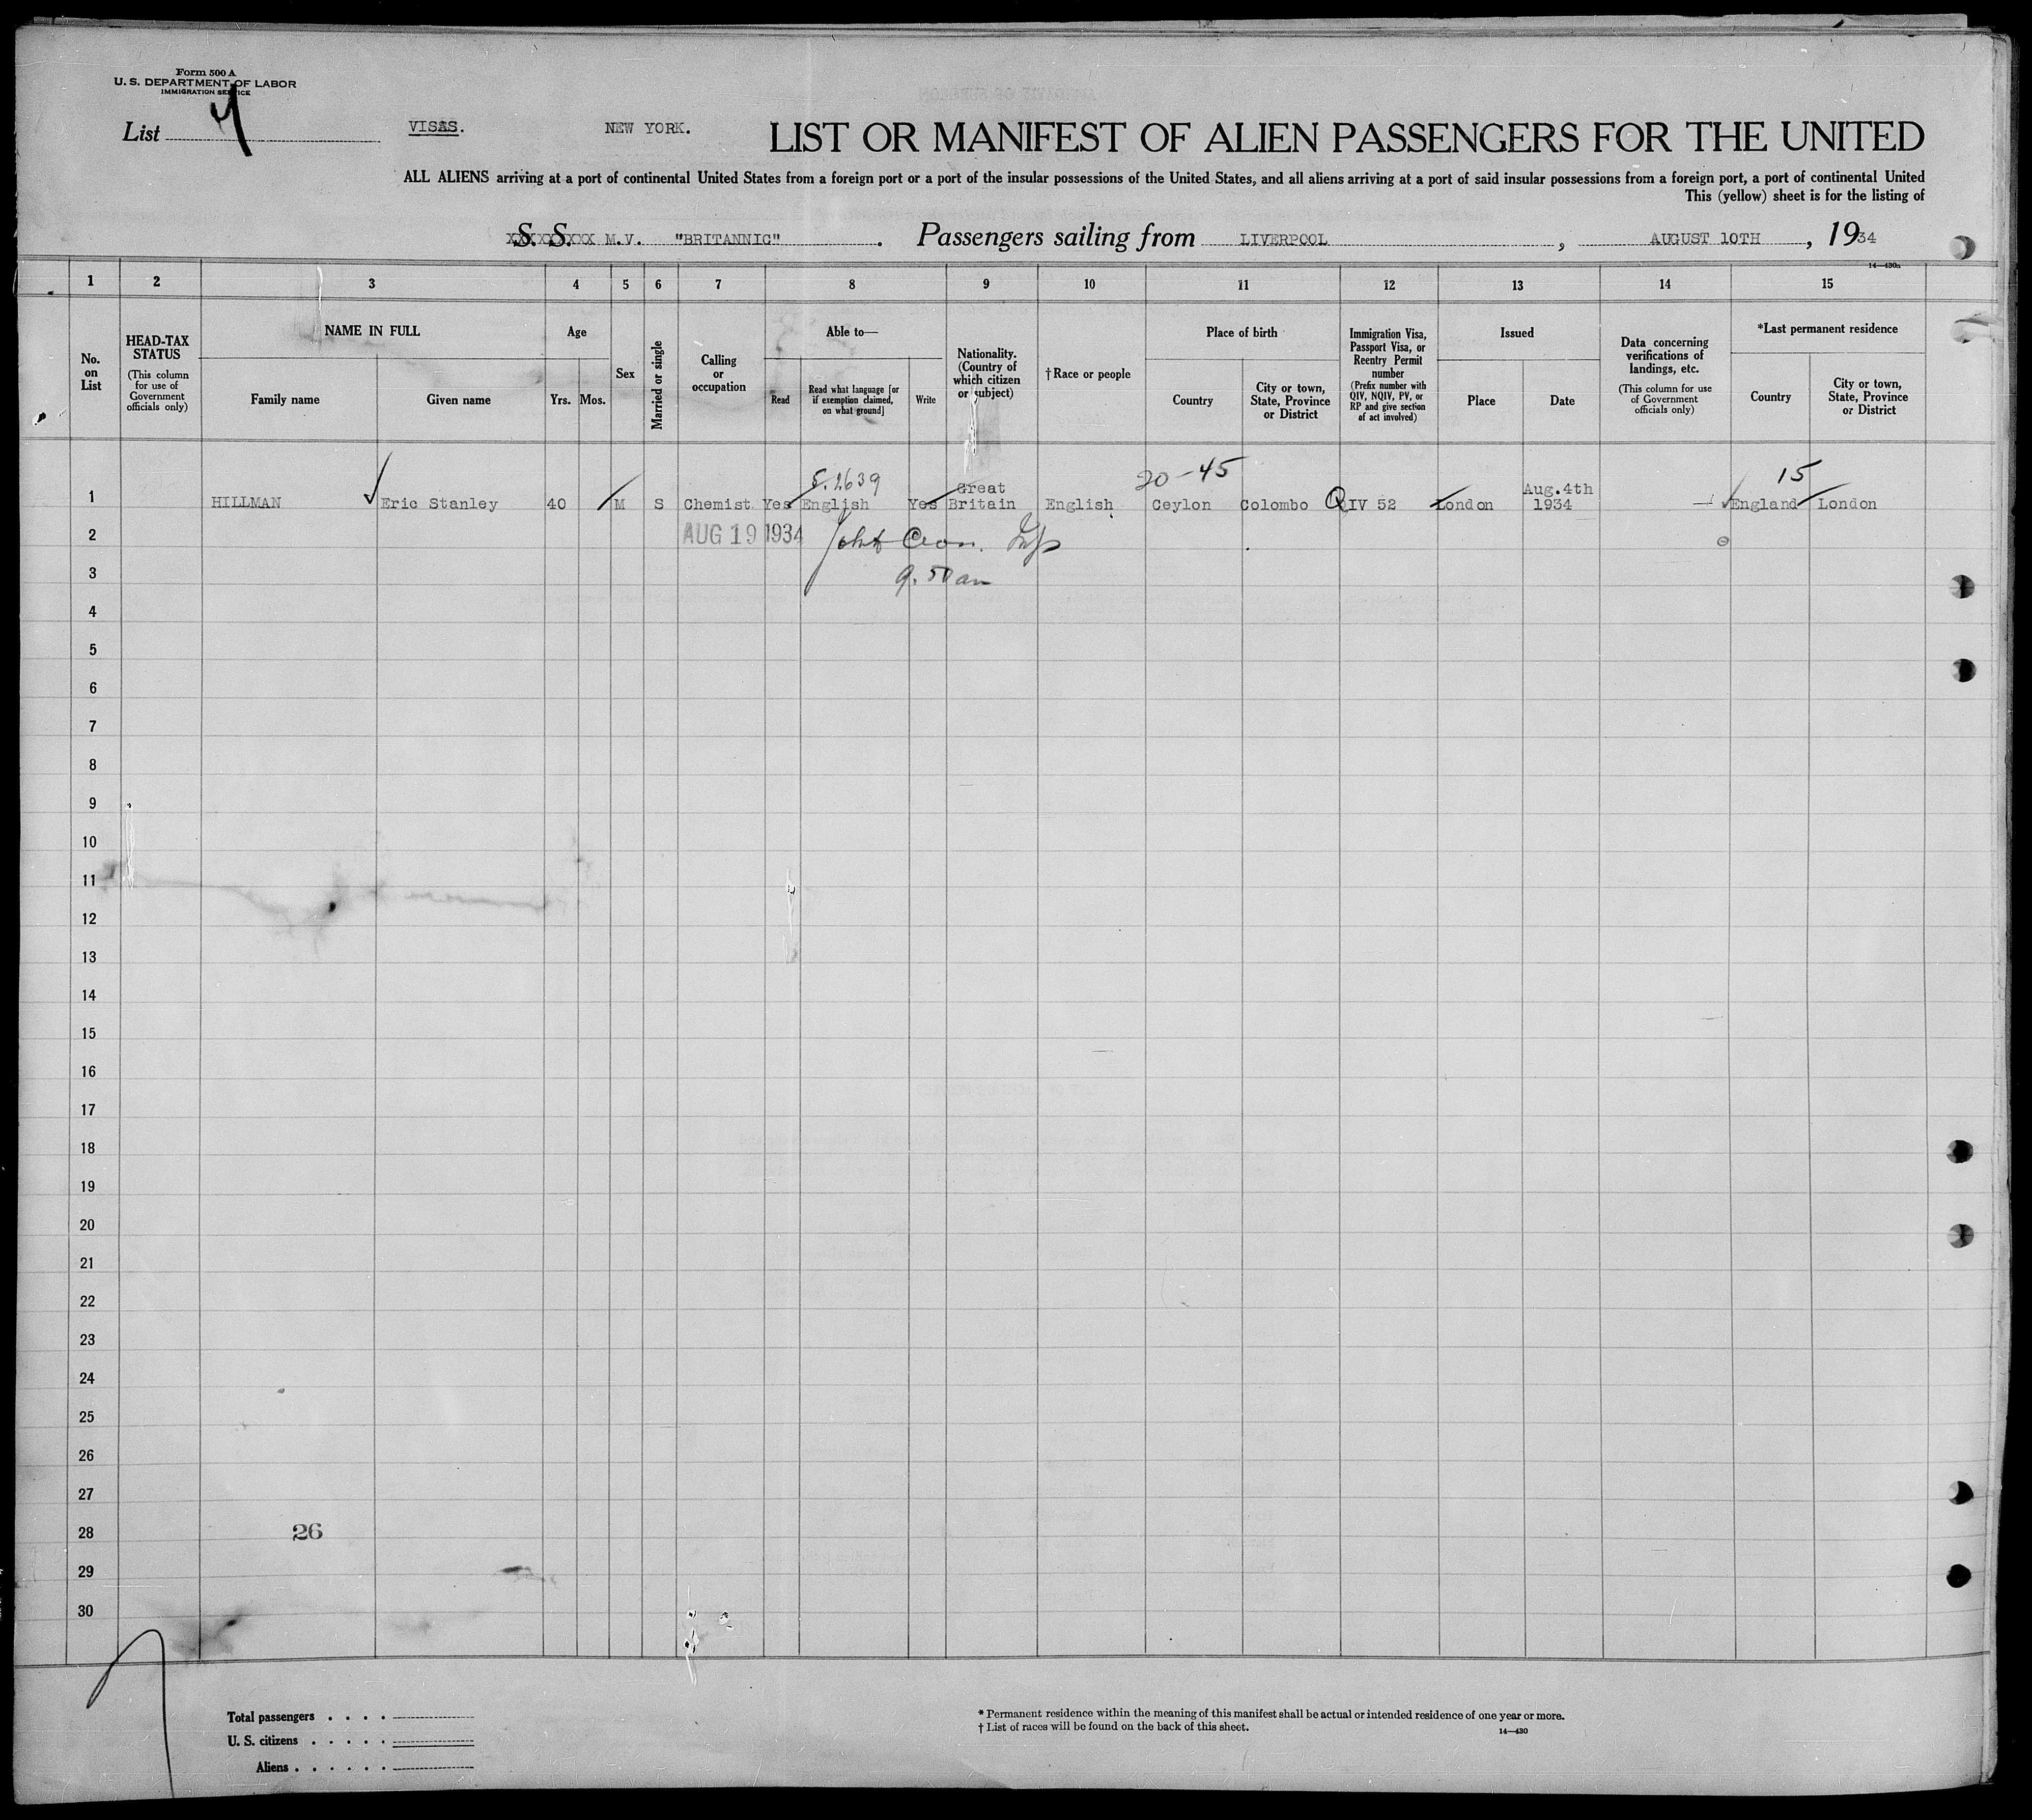 Form 500 A
U. S. DEPARTMENT OF LABOR
IMMIGRATION SERVICE
List 4
VISAS.
NEW YORK.
LIST OR MANIFEST OF ALIEN PASSENGERS FOR THE UNITED
ALL ALIENS arriving at a port of continental United States from a foreign port or a port of the insular possessions of the United States, and all aliens arriving at a port of said insular possessions from a foreign port, a port of continental United
This (yellow) sheet is for the listing of
S. S. M.V. "BRITANNIC" . Passengers sailing from LIVERPOOL , AUGUST 10TH , 1934
14—430a
1 2 3 4 5 6 7 8 9 10 11 12 13 14 15
No. on List
HEAD-TAX STATUS
(This column for use of Government officials only)
NAME IN FULL
Family name
Given name
Age
Yrs. Mos.
Sex
Married or single
Calling or occupation
Able to—
Read
Read what language [or if exemption claimed, on what ground]
Write
Nationality. (Country of which citizen or subject)
† Race or people
Place of birth
Country
City or town, State, Province or District
Immigration Visa, Passport Visa, or Reentry Permit number
(Prefix number with QIV, NQIV, PV, or RP and give section of act involved)
Issued
Place
Date
Data concerning verifications of landings, etc.
(This column for use of Government officials only)
*Last permanent residence
Country
City or town, State, Province or District
20-45
15
1 HILLMAN Eric Stanley 40 M S Chemist Yes English Yes Great Britain English Ceylon Colombo QIV 52 London Aug.4th 1934 England London
2 AUG 19 1934
3
4
5
6
7
8
9
10
11
12
13
14
15
16
17
18
19
20
21
22
23
24
25
26
27
28 26
29
30
Total passengers . . . .
U. S. citizens . . . . .
Aliens . . . . . .
* Permanent residence within the meaning of this manifest shall be actual or intended residence of one year or more.
† List of races will be found on the back of this sheet.
14—430